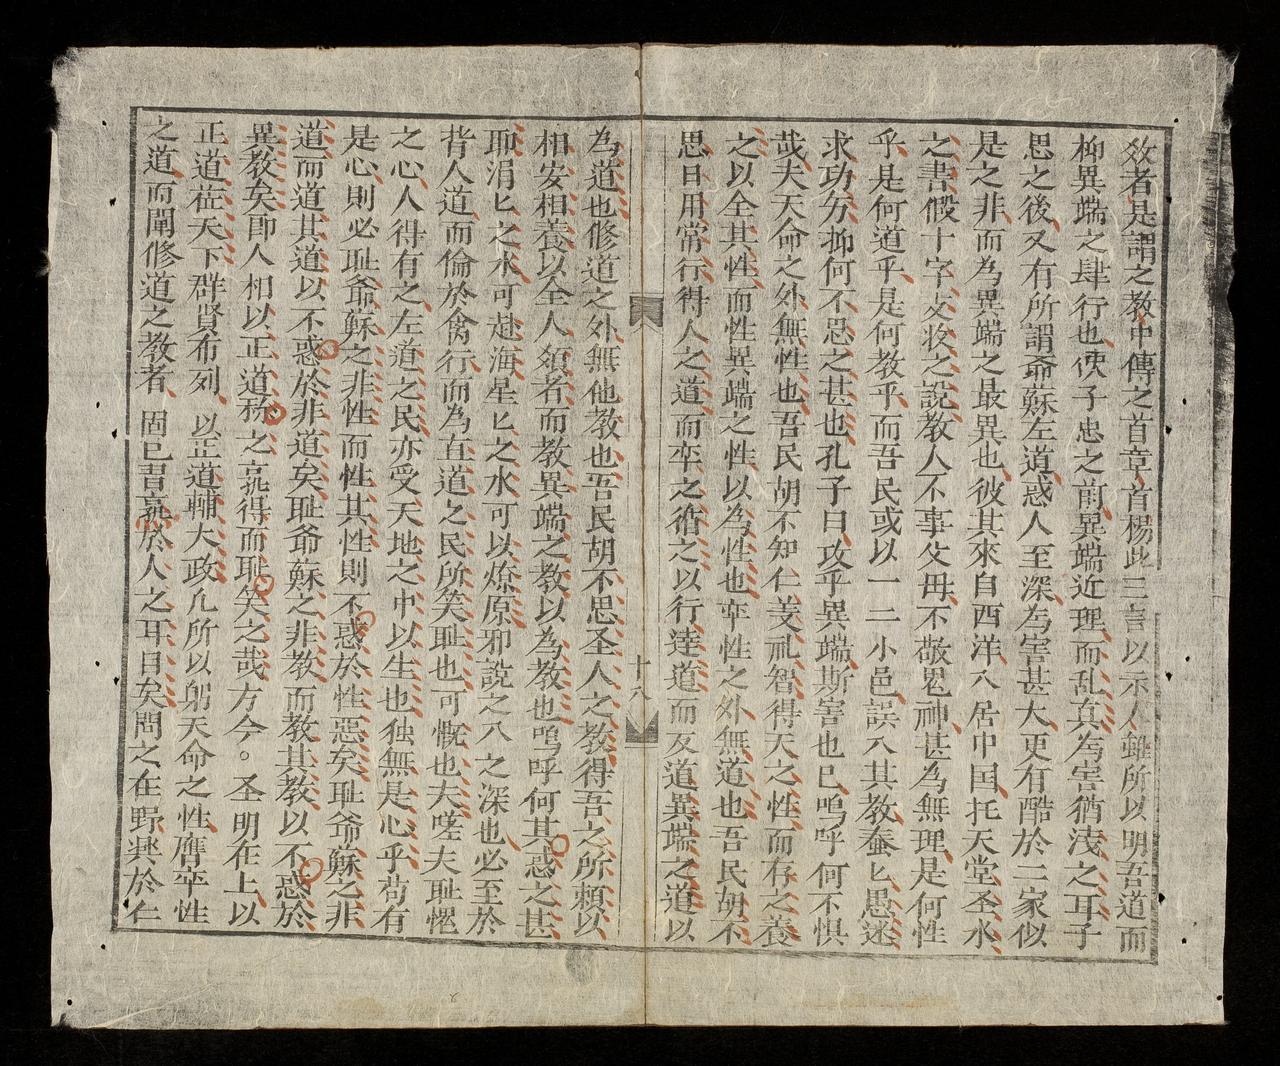 效者是謂之教中傳之首章首楊此三言以示人雖所以明吾道而
柳異端之肆行也使子思之前異端近理而乱真為害猶浅之耳子
思之後又有所謂爺蘇左道惑人至深為害甚大更有酷於二家似
是之非而為異端之最異也彼其來自西洋八居中国托天堂圣水
之書假十字文妆之說教人不事父母不敬鬼神甚為無理是何性
乎是何道乎是何教乎而吾民或以一二小邑誤八其教蚕匕愚迷
求功分抑何不思之甚也孔子曰攻乎異端斯害也已嗚呼何不惧
哉夫天命之外無性也吾民胡不知仁义礼智得天之性而存之養
之以全其性而性異端之性以為性也率性之外無道也吾民胡不
思日用常行得人之道而率之循之以行達道而反道異端之道以
十八
為道也修道之外無他教也吾民胡不思圣人之教得吾之所頼以
相安相養以全人須者而教異端之教以為教也嗚呼何其惑之甚
耶涓匕之水可赴海星匕之水可以燎原邪說之八之深也必至於
背人道而倫於禽行而為直道之民所笑耻也可慨也夫嗟夫耻怩
之心人得有之左道之民亦受天地之中以生也独無是心乎苟有
是心則必耻爺蘇之非性而性其性則不惑於性惡矣耻爺蘇之非
道而道其道以不惑於非道矣耻爺蘇之非教而教其教以不惑於
異教矣即人相以正道称之孰得而耻笑之哉方今。圣明在上以
正道莅天下群賢布列以正道輔大政凡所以躬天命之性膺率性
之道而闡修道之教者固已昔孰於人之耳目矣問之在野興於仁